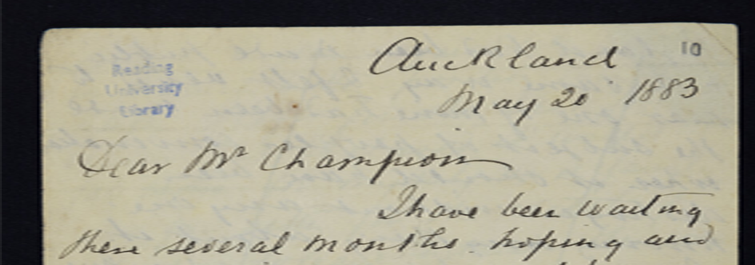 Auckland
10
May 20 1883
Reading
University
Library
Dear Mr Champion
I have been waiting
these several months. hoping and